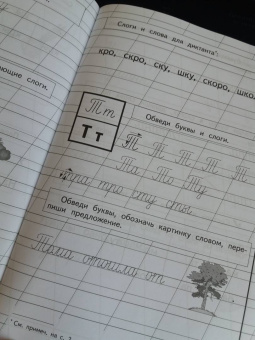 Слоги и слова для диктанта
кро, скро, ску, шку, скоро, шко
ющие слоги.
Т т
Т т
Обведи буквы и слоги.
Т Т Т Т Т
Та То Ту
тра тро сту сты
Обведи буквы, обозначь картинку словом, пере-
пиши предложение.
от
* См. примеч. на с.